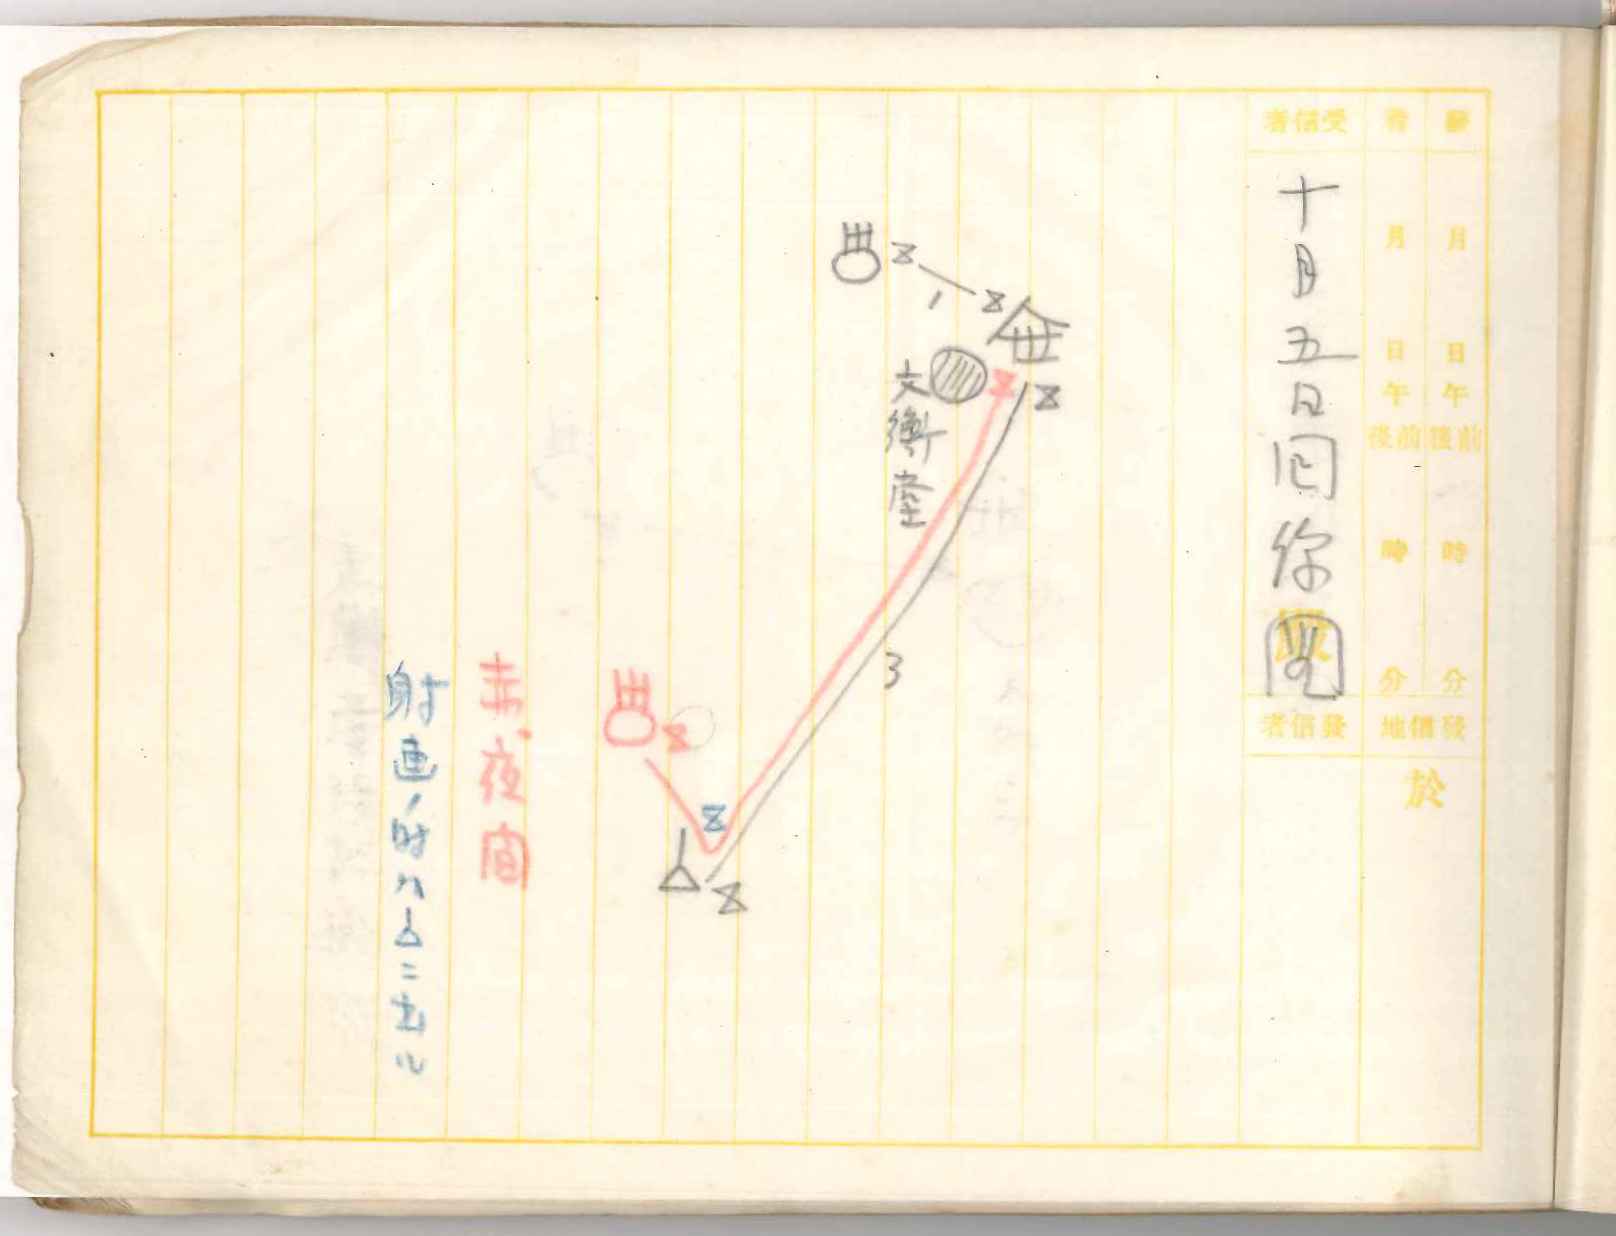 發着
月月
日日
午午
前後前後
時時
分分
發信地
於
受信者
十月五日回線図
發信者
Z
Z
Z
Z
1
文衡堂
3
Z
Z
Z
赤夜間
射画ノ時ハムニ出ル